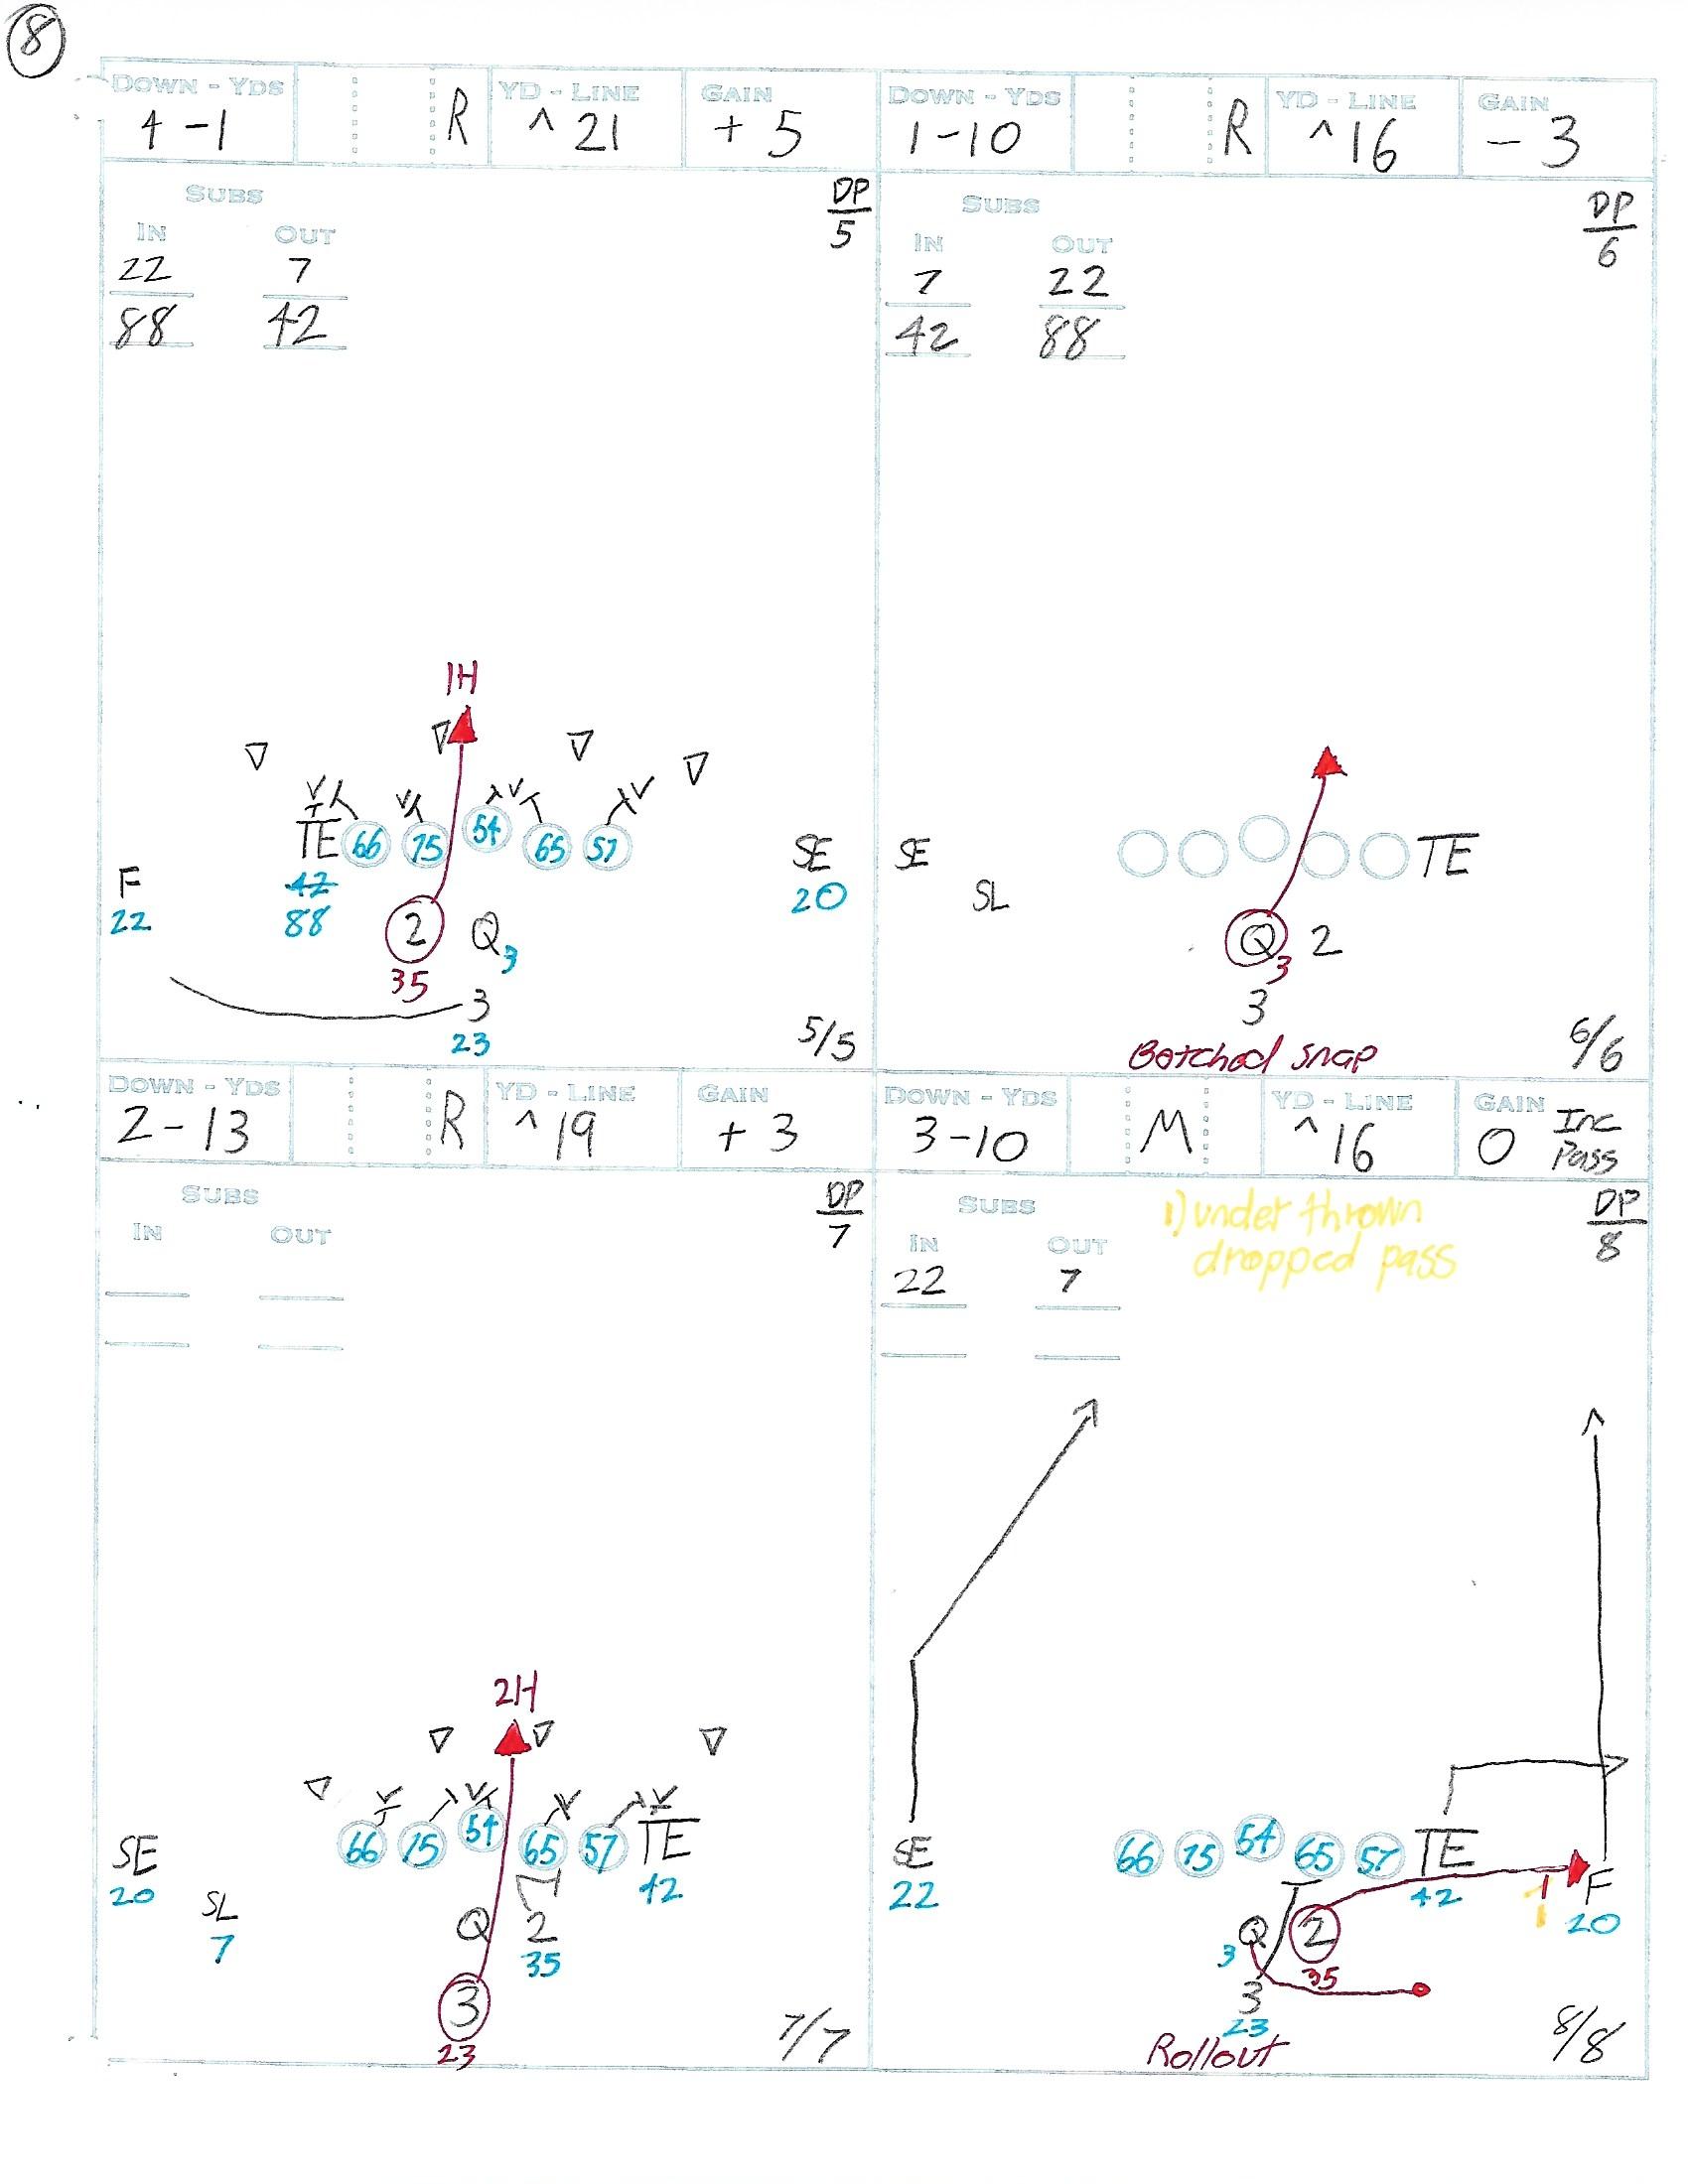 8
DOWN - YDS YD - LINE GAIN
4-1 R ^21 +5
DP
5
SUBS
IN OUT
22 7
88 42
1H
TE 66 75 54 65 57
F SE
22 42 20
88
2 Q 3
35
3
23
5/5
DOWN - YDS YD - LINE GAIN
1-10 R ^16 -3
DP
6
SUBS
IN OUT
7 22
42 88
SE TE
SL
Q 3 2
3
Botched snap
6/6
DOWN - YDS YD - LINE GAIN
2-13 R ^19 +3
DP
7
SUBS
IN OUT
2H
SE 66 75 54 65 57 TE
20 42
SL
7
Q 2
35
3
23
7/7
DOWN - YDS YD - LINE GAIN
3-10 M ^16 0 Inc
Pass
DP
8
SUBS
IN OUT
22 7
1) under thrown
dropped pass
SE 66 75 54 65 57 TE
22 42 F
20
1
3 Q 2
35
3
23
Rollout
8/8